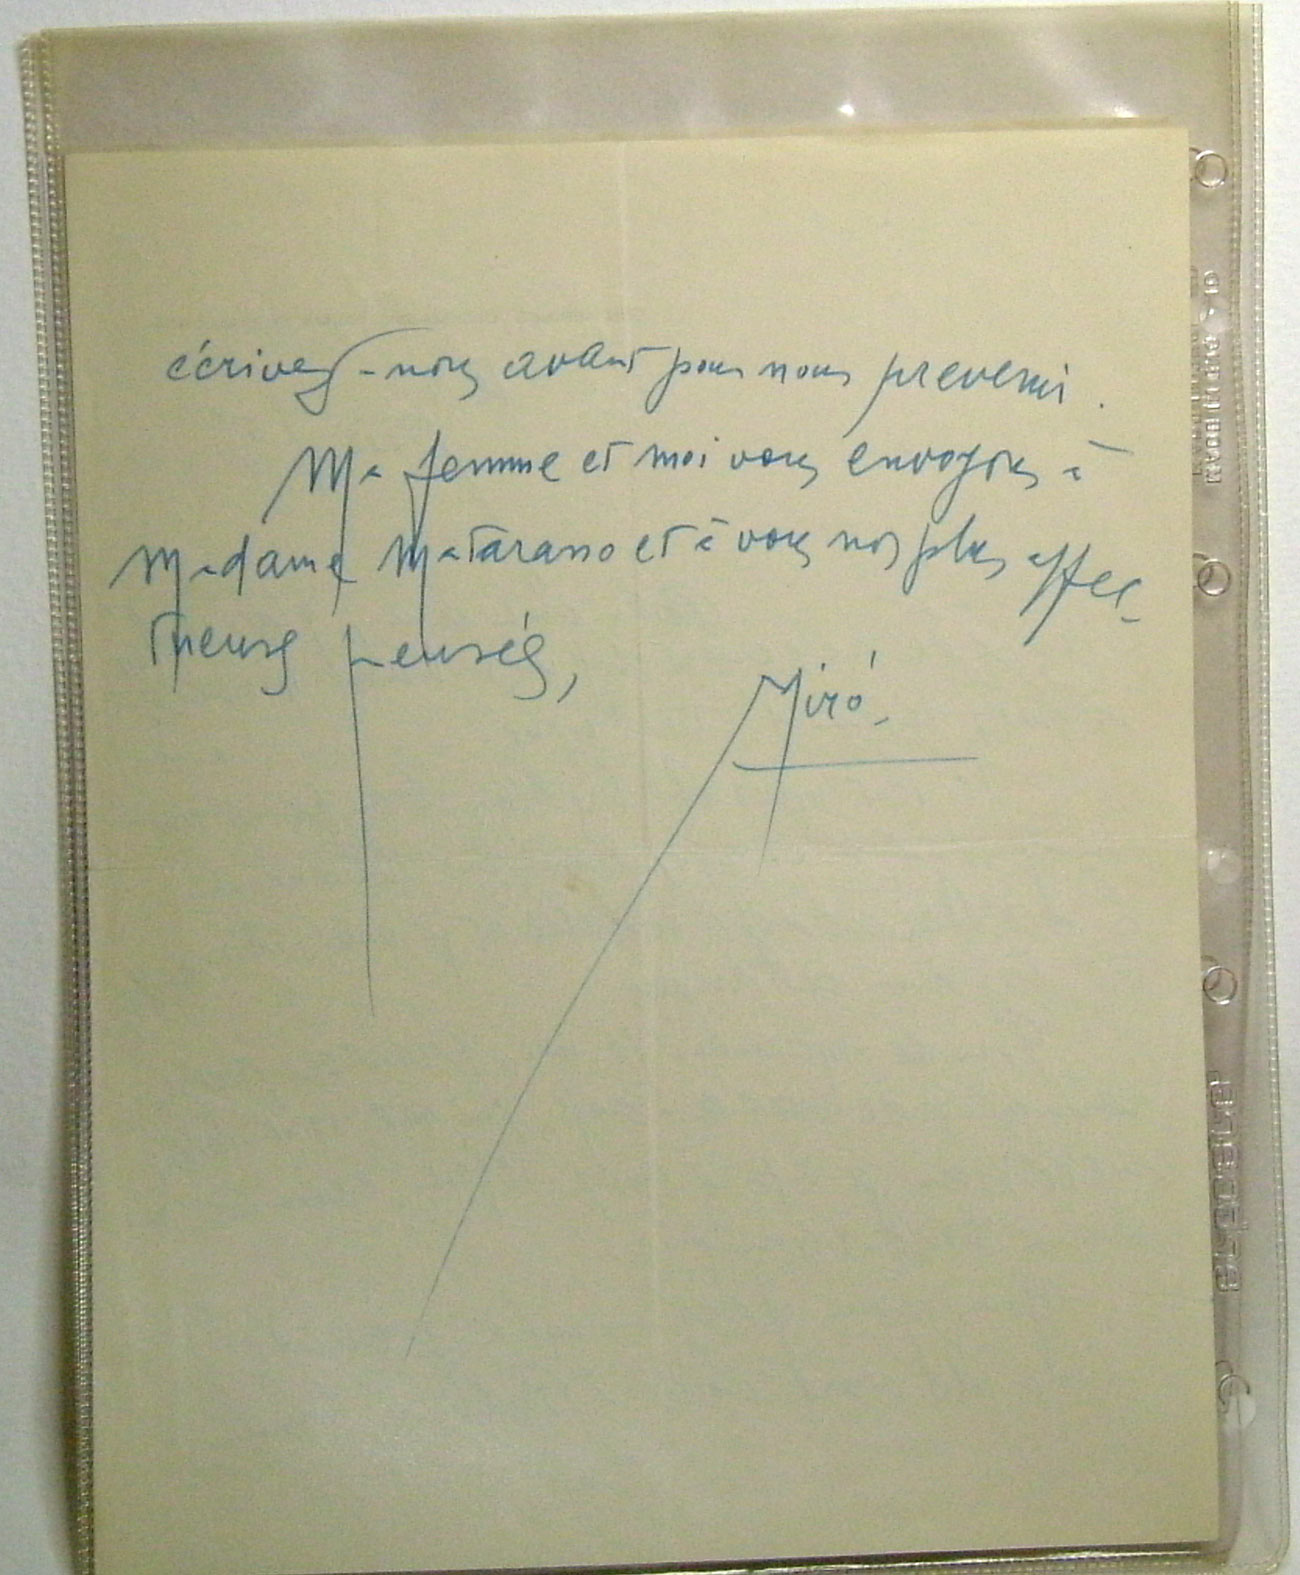 écrivez-nous avant pour nous prevenir.
Ma femme et moi vous envoyons à
Madame Matarasso et à vous nos plus affec-
tueuses pensées,
Miró.